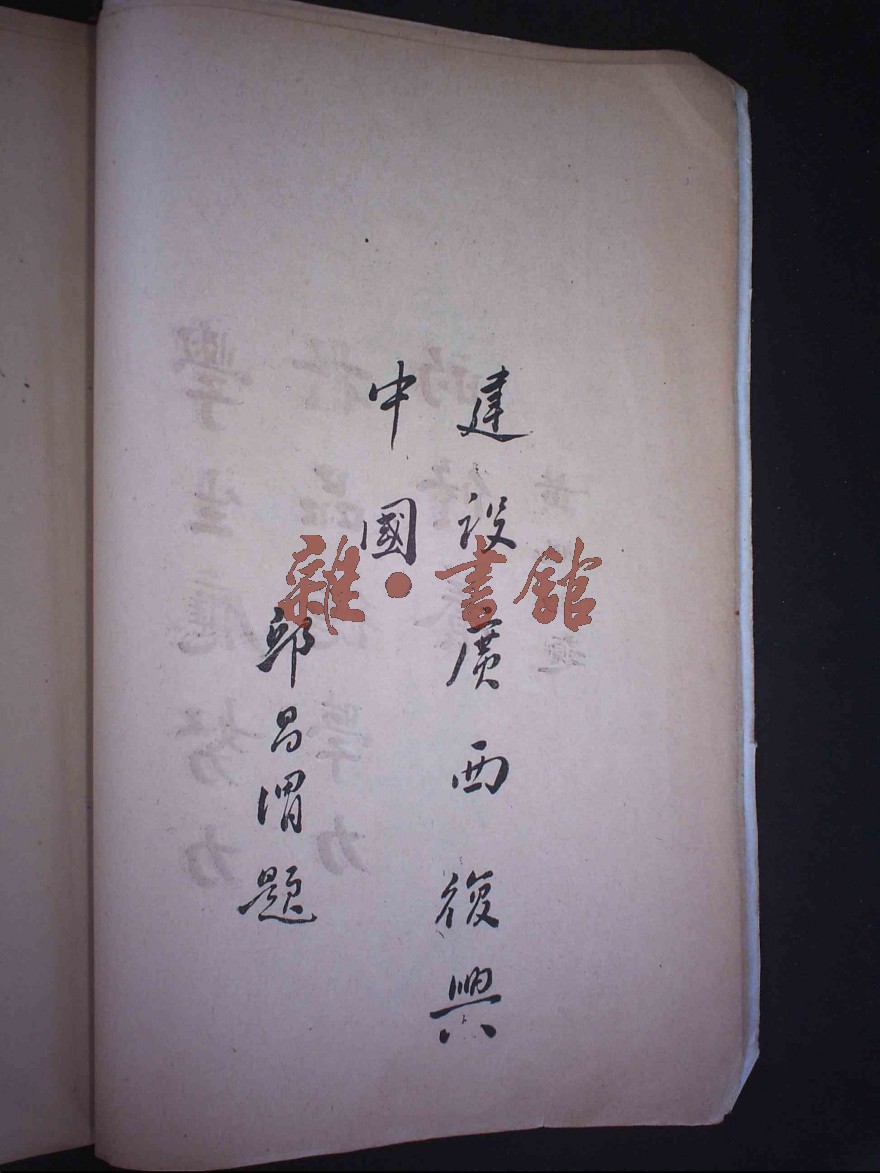 建設廣西復興
中國
邱昌渭題
雜·書館